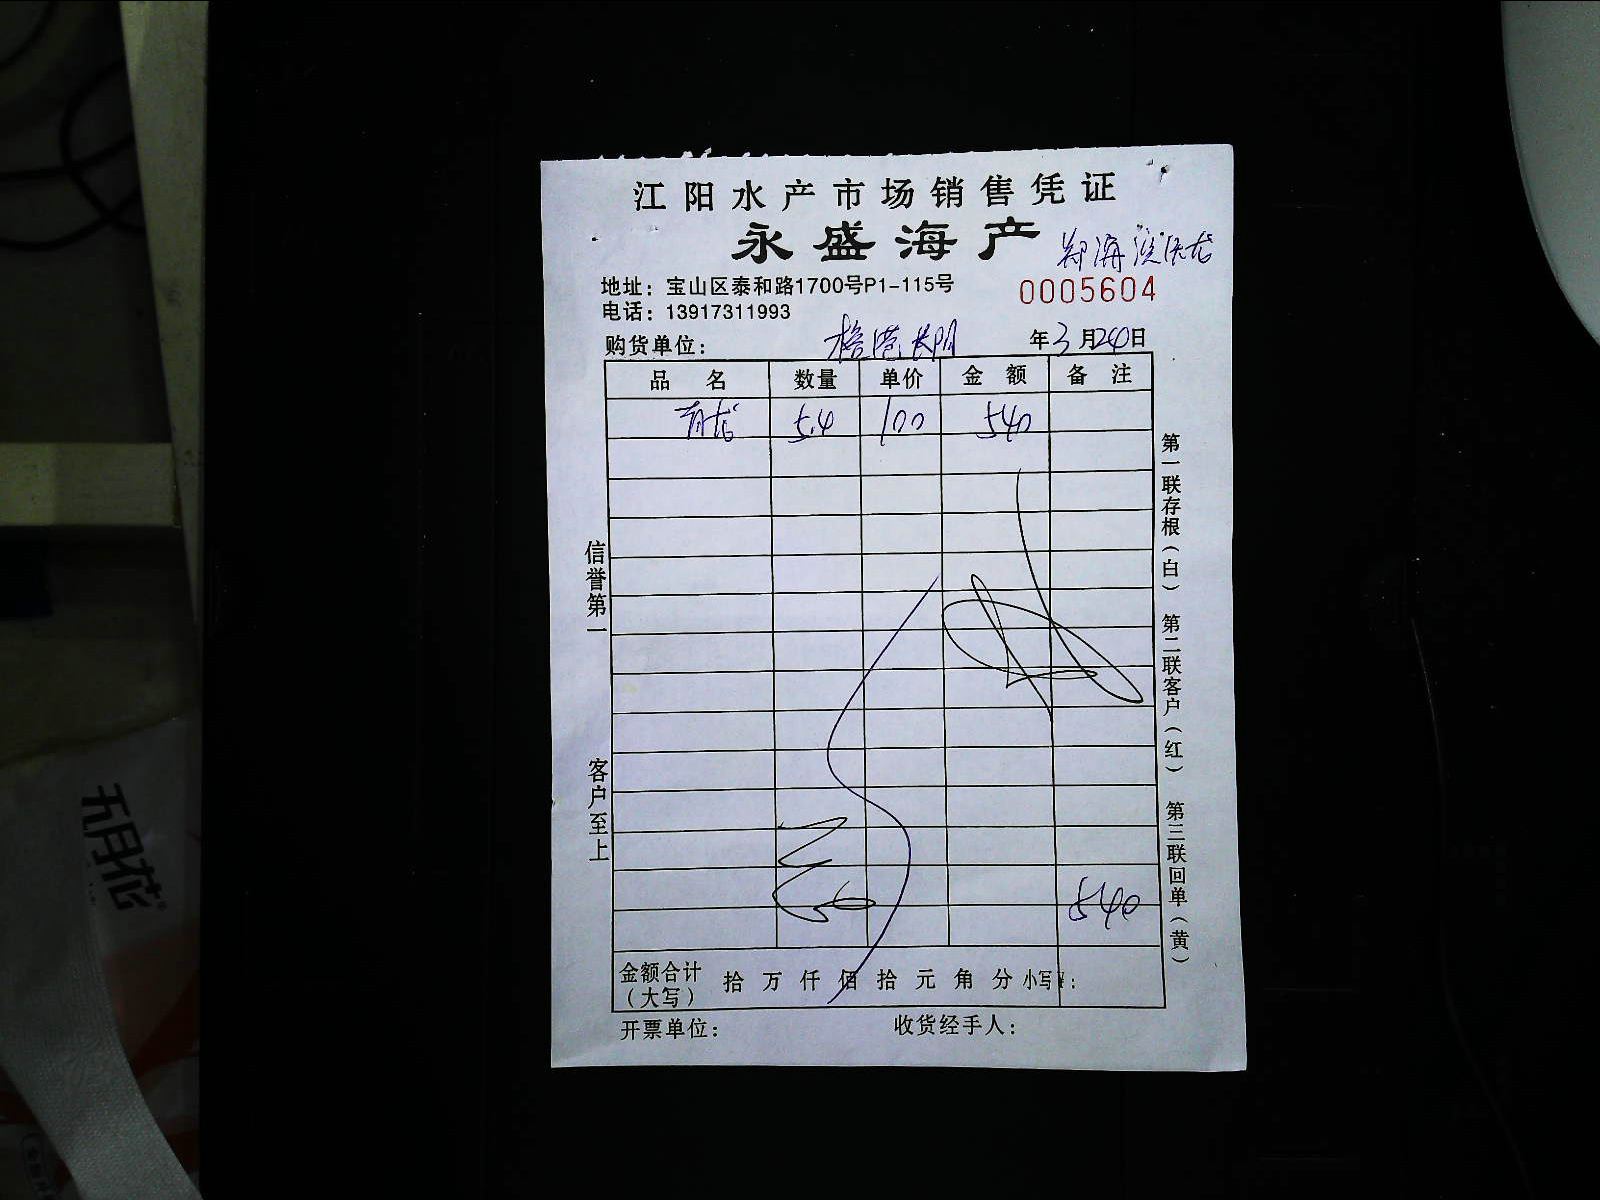 江阳水产市场销售凭证
永盛海产
地址：宝山区泰和路1700号P1-115号
0005604
电话：13917311993
购货单位：
年3月24日
品名 数量 单价 金额 备注
青龙 5.4 100 540
信誉第一
客户至上
第一联存根（白） 第二联客户（红） 第三联回单（黄）
540
金额合计（大写） 拾 万 仟 佰 拾 元 角 分 小写¥：
开票单位： 收货经手人：
五月花